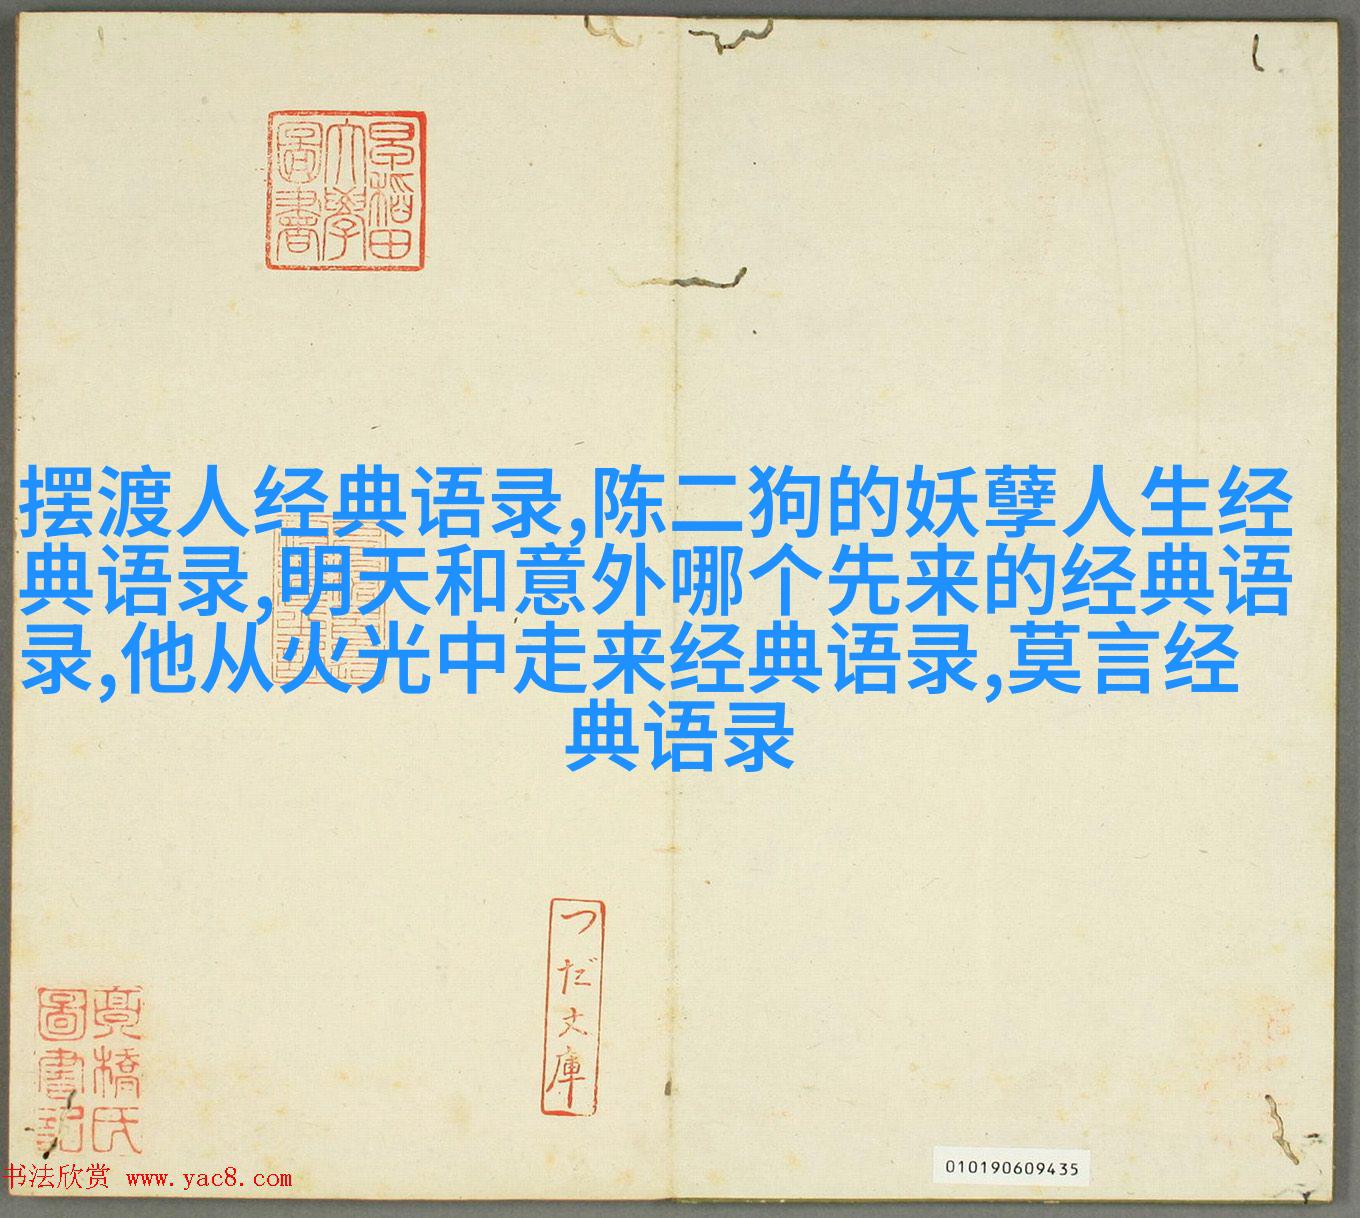 早稲田
大學
圖書
摆渡人经典语录,陈二狗的妖孽人生经
典语录,明天和意外哪个先来的经典语
录,他从火光中走来经典语录,莫言经
典语录
つだ文庫
橋氏
圖書記
书法欣赏 www.yac8.com
010190609435